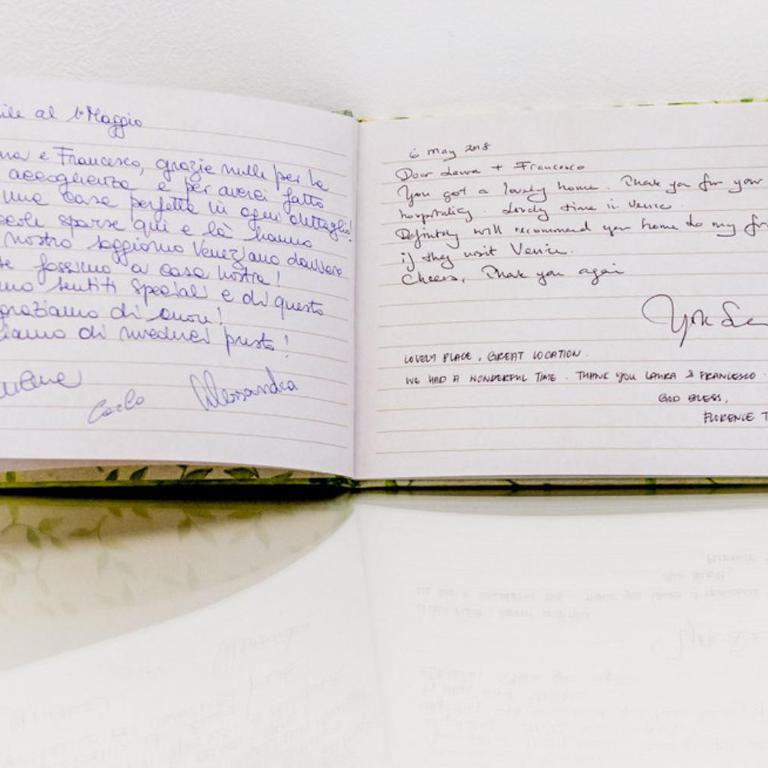 al 1 Maggio
e Francesco, grazie mille per la
accoglienza e per averci fatto
una casa perfetta in ogni dettaglio!
sparse qui e là hanno
nostro soggiorno Veneziano davvero
fossimo a casa nostra!
sentiti speciali e di questo
di cuore!
di rivederci presto!
Carlo Alessandra
6 May 2018
Dear Laura + Francesco
You got a lovely home. Thank you for your
hospitality. Lovely time in Venice.
Definitely will recommend your home to my
if they visit Venice.
Cheers, Thank you again
LOVELY PLACE, GREAT LOCATION.
WE HAD A WONDERFUL TIME. THANK YOU LAURA & FRANCESCO
GOD BLESS,
FLORENCE T